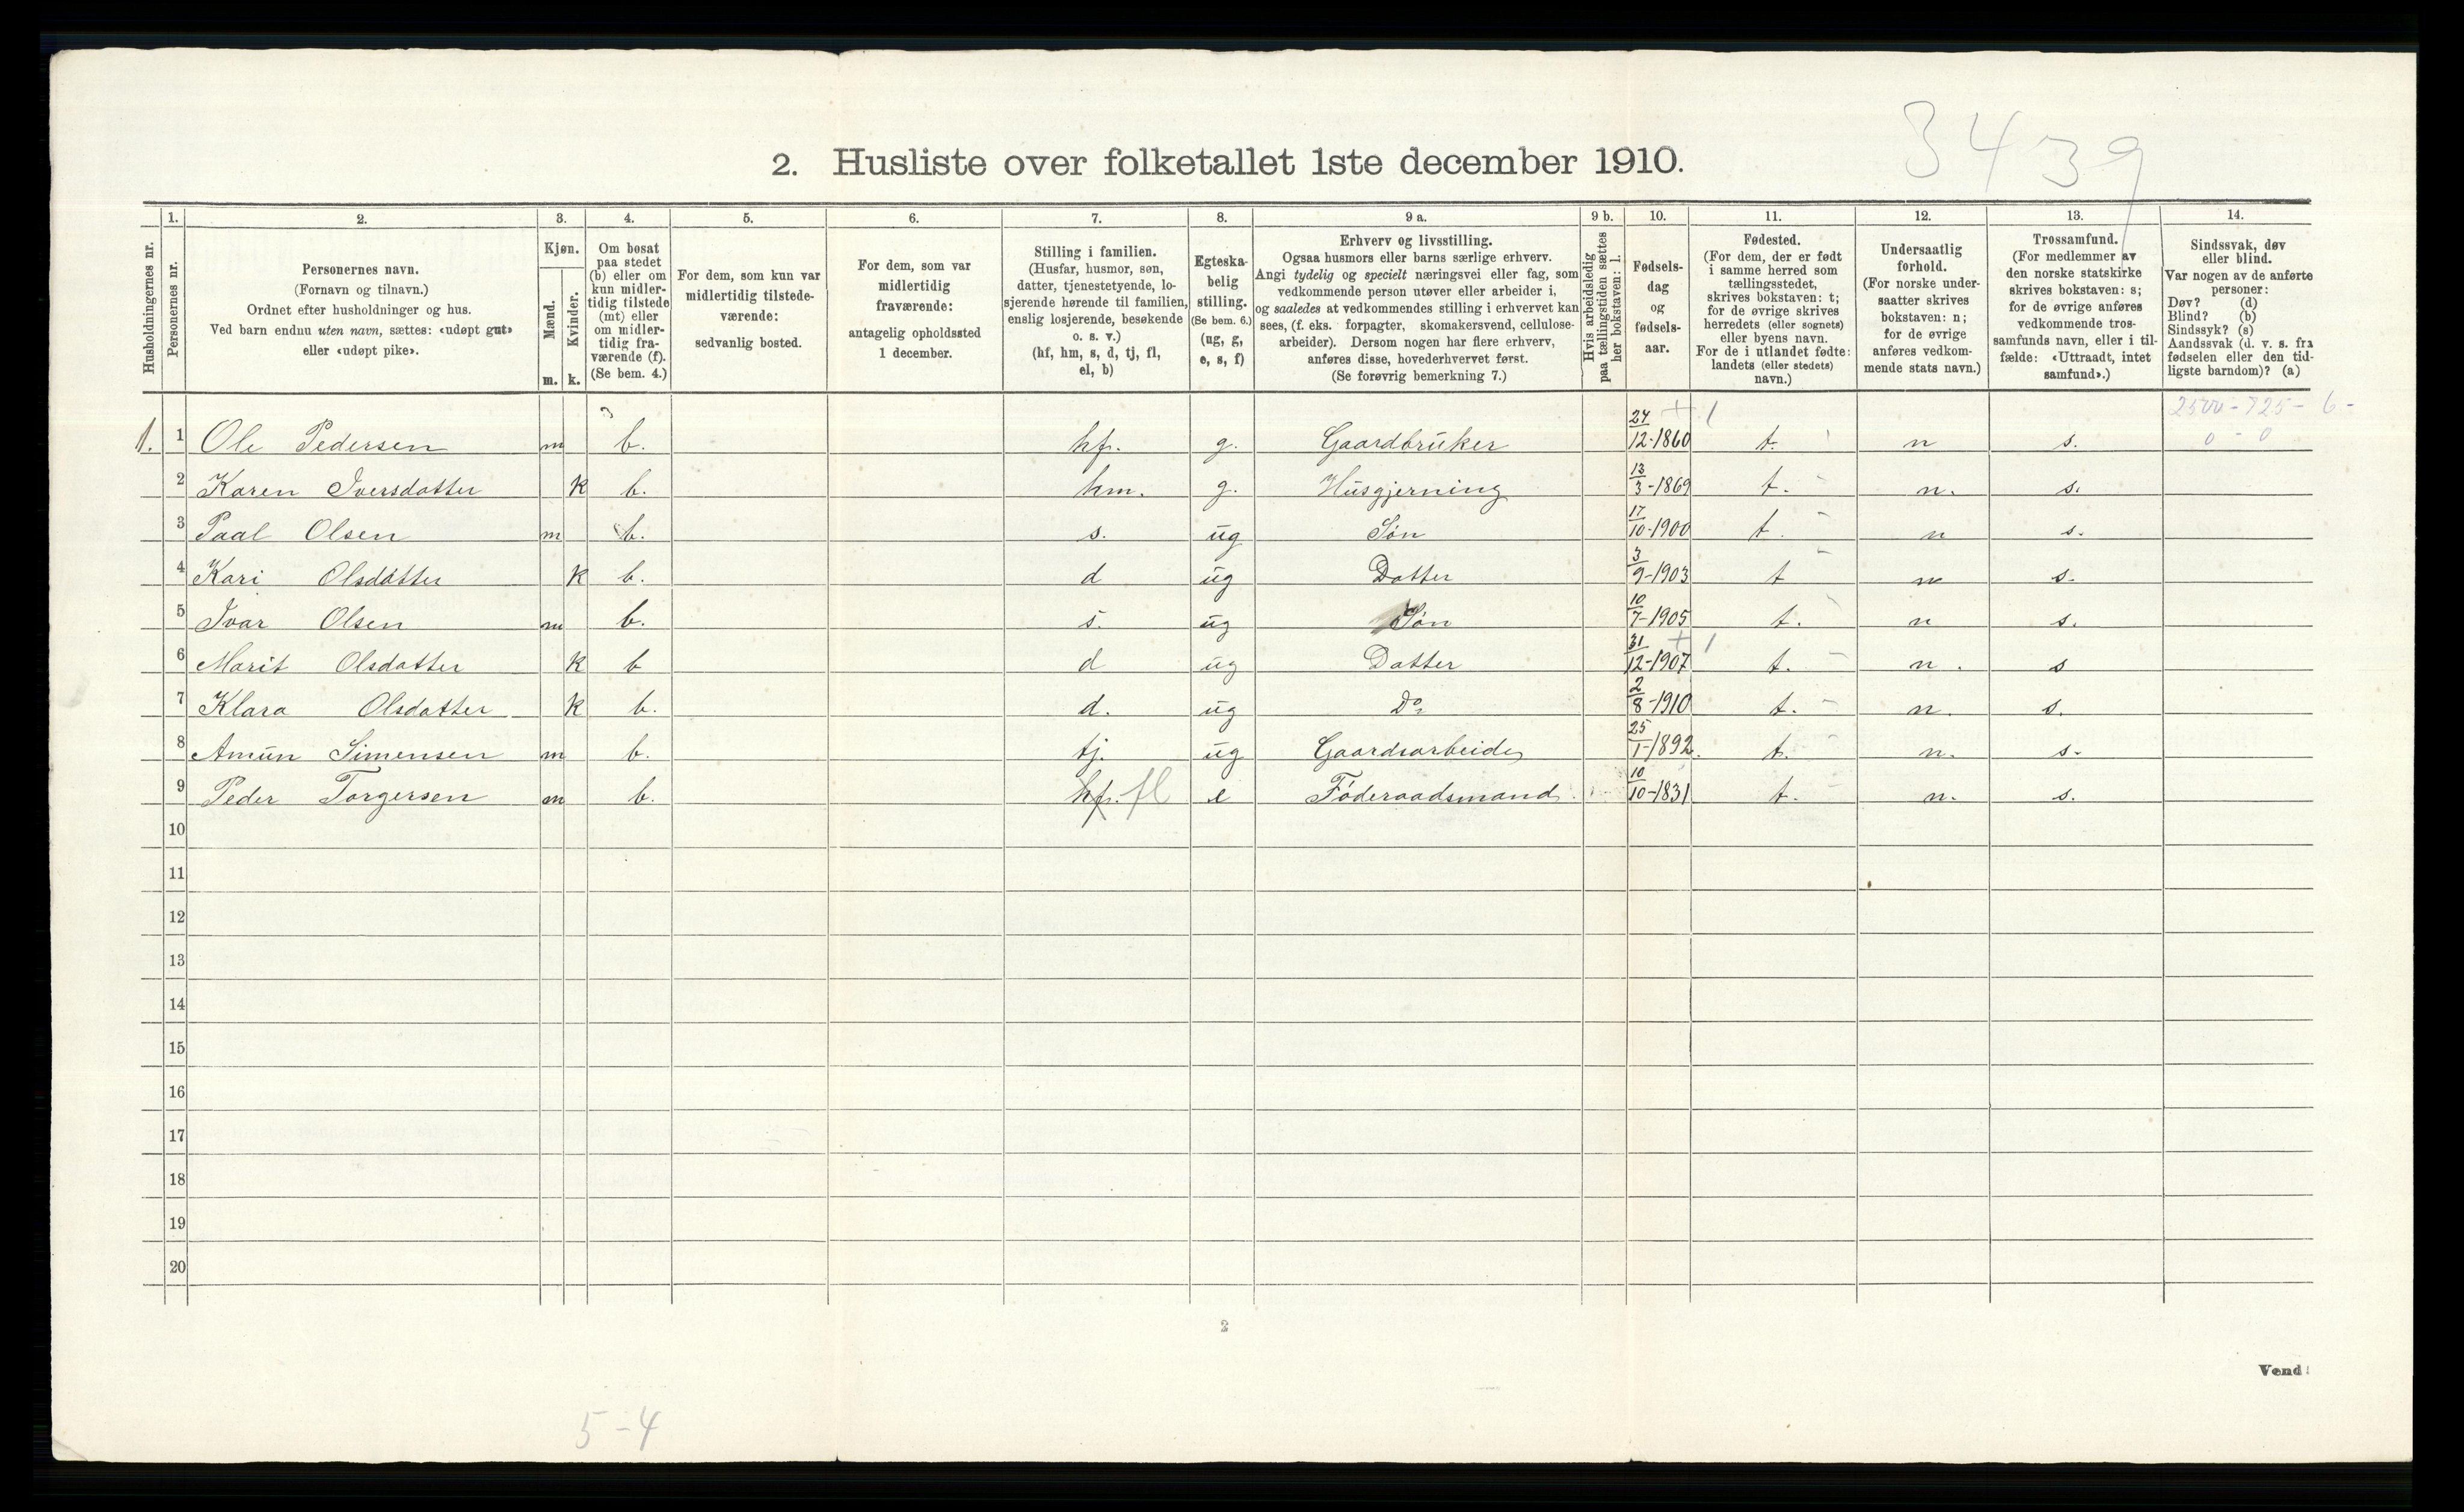 3439
2. Husliste over folketallet 1ste december 1910.
1. 2. 3. 4. 5. 6. 7. 8. 9 a. 9 b. 10. 11. 12. 13. 14.
Husholdningernes nr.
Personernes nr.
Personernes navn.
(Fornavn og tilnavn.)
Ordnet efter husholdninger og hus.
Ved barn endnu uten navn, sættes: «udøpt gut»
eller «udøpt pike».
Kjøn.
Mænd.
m.
Kvinder.
k.
Om bosat
paa stedet
(b) eller om
kun midler-
tidig tilstede
(mt) eller
om midler-
tidig fra-
værende (f).
(Se bem. 4.)
For dem, som kun var
midlertidig tilstede-
værende:
sedvanlig bosted.
For dem, som var
midlertidig
fraværende:
antagelig opholdssted
1 december.
Stilling i familien.
(Husfar, husmor, søn,
datter, tjenestetyende, lo-
sjerende hørende til familien,
enslig losjerende, besøkende
o. s. v.)
(hf, hm, s, d, tj, fl,
el, b)
Egteska-
belig
stilling.
(Se bem. 6.)
(ug, g,
e, s, f)
Erhverv og livsstilling.
Ogsaa husmors eller barns særlige erhverv.
Angi tydelig og specielt næringsvei eller fag, som
vedkommende person utøver eller arbeider i,
og saaledes at vedkommendes stilling i erhvervet kan
sees, (f. eks. forpagter, skomakersvend, cellulose-
arbeider). Dersom nogen har flere erhverv,
anføres disse, hovederhvervet først.
(Se forøvrig bemerkning 7.)
Hvis arbeidsledig
paa tællingstiden sættes
her bokstaven: l.
Fødsels-
dag
og
fødsels-
aar.
Fødested.
(For dem, der er født
i samme herred som
tællingsstedet,
skrives bokstaven: t;
for de øvrige skrives
herredets (eller sognets)
eller byens navn.
For de i utlandet fødte:
landets (eller stedets)
navn.)
Undersaatlig
forhold.
(For norske under-
saatter skrives
bokstaven: n;
for de øvrige
anføres vedkom-
mende stats navn.)
Trossamfund.
(For medlemmer av
den norske statskirke
skrives bokstaven: s;
for de øvrige anføres
vedkommende tros-
samfunds navn, eller i til-
fælde: «Uttraadt, intet
samfund».)
Sindssvak, døv
eller blind.
Var nogen av de anførte
personer:
Døv? (d)
Blind? (b)
Sindssyk? (s)
Aandssvak (d. v. s. fra
fødselen eller den tid-
ligste barndom)? (a)
2500 - 725 - 6 -
0 - 0
1. 1 Ole Pedersen m b. hf. g. Gaardbruker 24/12-1860 t. n s.
2 Karen Iversdatter k b. hm. g. Husgjerning 13/3-1869 t. n. s.
3 Paal Olsen m b. s. ug Søn 17/10-1900 t. n s.
4 Kari Olsdatter k b. d ug Datter 3/9-1903 t n s.
5 Ivar Olsen m b. s. ug Søn 10/7-1905 t. n s.
6 Marit Olsdatter k b d ug Datter 31/12-1907 t. n. s
7 Klara Olsdatter k b. d. ug Do 2/8-1910 t. n. s.
8 Amun Simensen m b. tj. ug Gaardsarbeider 25/1-1892. t. n. s.
9 Peder Torgersen m b. hf. fl e Føderaadsmand. 10/10-1831 t. n. s.
10
11
12
13
14
15
16
17
18
19
20
2
Vend!
5-4